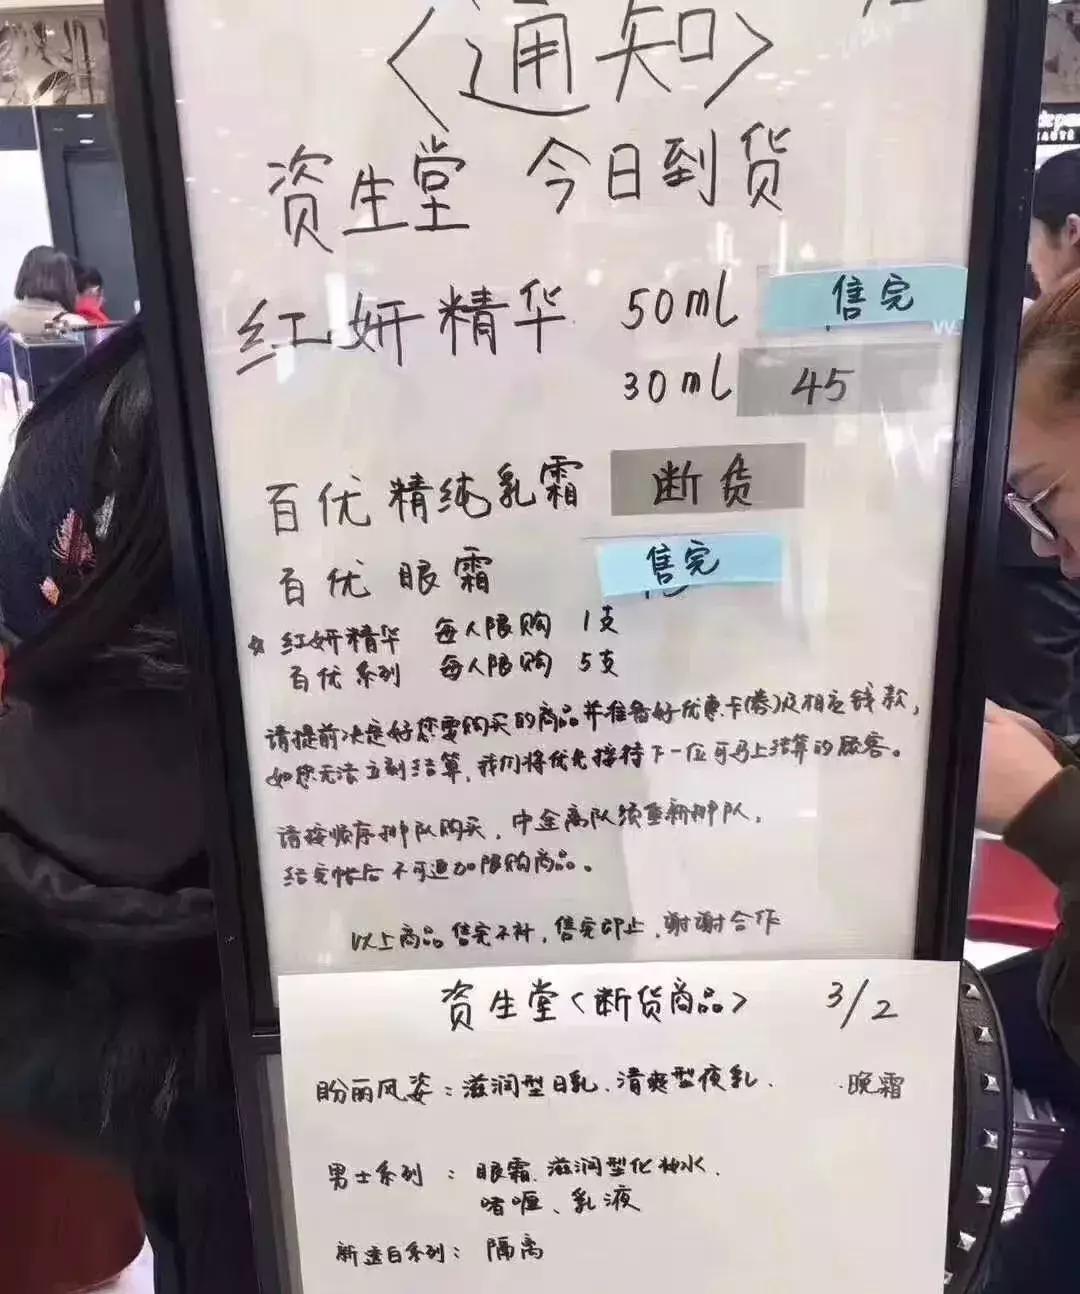 〈通知〉
资生堂 今日到货
红妍精华 50ml 售完
30ml 45
百优精纯乳霜 断货
百优眼霜 售完
☆ 红妍精华 每人限购 1支
百优系列 每人限购 5支
请提前决定好您要购买的商品并准备好优惠卡(券)及相应钱款,
如您无法立刻结算,我们将优先接待下一位可马上结算的顾客。
请按顺序排队购买,中途离队须重新排队,
结完帐后不可追加限购商品。
以上商品售完不补,售完即止,谢谢合作
资生堂〈断货商品〉 3/2
盼丽风姿:滋润型日乳、清爽型夜乳、 晚霜
男士系列:眼霜、滋润型化妆水、
啫喱、乳液
新透白系列:隔离